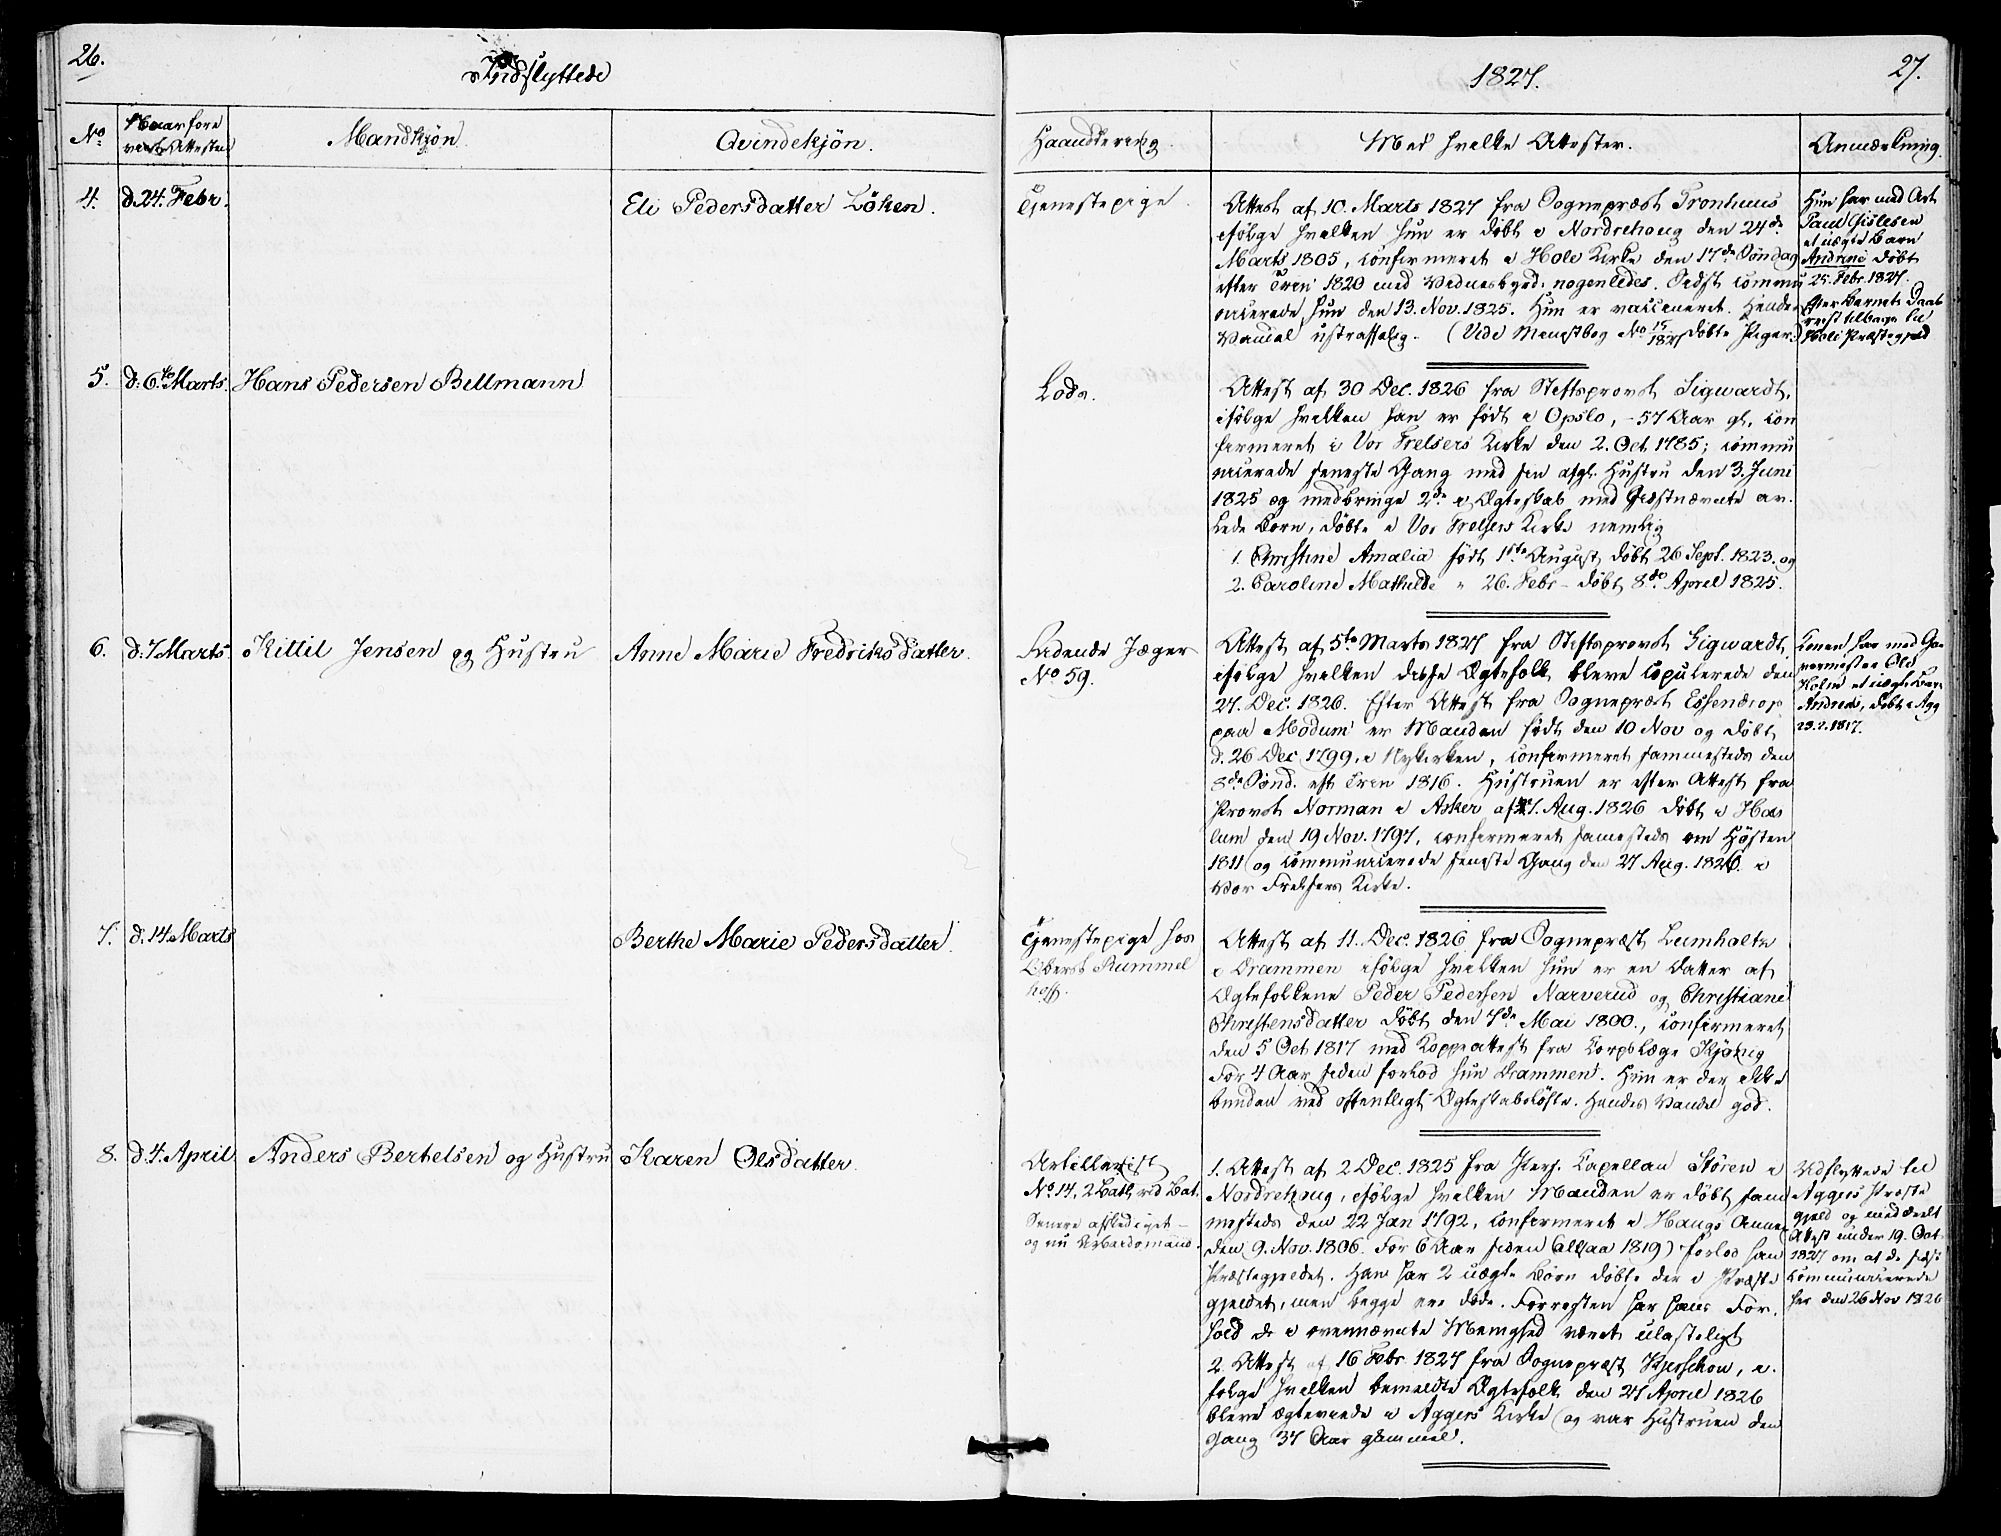 26.
Indflyttede
1827.
27.
No
Naar fore
viist Attesten
Mandkjøn.
Qvindekjøn.
Haandtering.
Med hvilke Attester.
Anmærkning.
4.
d. 24. Febr.
Eli Pedersdatter Löken.
Tjenestepige.
Attest af 10. Marts 1827 fra Sognepræst Tronhuus
ifölge hvilken hun er döbt i Norderhoug den 24de
Marts 1805, confirmeret i Hole Kirke den 17de Söndag
efter Trin 1820 med Vidnesbyrd: nogenledes. Sidst commu
nicerede hun den 13. Nov. 1825. Hun er vaccineret. Hendes
Vandel ustraffelig. (Vide Menistbog No 15/1827 döbte Piger.)
Hun har med Art
Paul Gislesen
et uægte Barn
Andrine döbt
25. Febr. 1827.
Efter Barnets Daab
reist tilbage til
Hole Præstegjeld
5.
d. 6te Marts.
Hans Pedersen Bellmann
Lods.
Attest af 30 Dec. 1826 fra Stiftsprovst Sigwardt,
ifölge hvilken han er födt i Opslo, - 57 Aar gl., con
firmeret i Vor Frelsers Kirke den 2. Oct. 1785; commu
nicerede seneste Gang med sin afgl. Hustru den 3. Juni
1825 og medbringe 2de i Ægteskab med Sidstnævnte av
lede Börn, döbte i Vor Frelsers Kirke nemlig
1. Christine Amalia födt 1ste August, döbt 26 Sept. 1823. og
2. Caroline Mathilde " 26. Febr - döbt 8de April 1825.
6.
d. 7 Marts.
Kittil Jensen og Hustru
Anne Marie Fredriksdatter.
Ridende Jæger
No 59.
Attest af 5te Marts 1827 fra Stiftsprovst Sigwardt,
ifölge hvilken disse Ægtefolk bleve copulerede den
27. Dec. 1826. Efter Attest fra Sognepræst Essendrop
paa Modum er Manden födt den 10 Nov og döbt
d. 26 Dec 1799. i Nykirken, confirmeret sammesteds den
8de Sönd. eft Trin 1816. Hustruen er efter Attest fra
Provst Norman i Asker af 17. Aug. 1826 döbt i Has
lum den 19 Nov. 1797, confirmeret samesteds om Hösten
1811 og communicerede seneste Gang den 27 Aug. 1826. i
Vor Frelsers Kirke.
Konen har med Ga
vermester Ole
Holm et uægte Bar
Andreas, döbt i Agg
23.2.1817.
7.
d. 14 Marts
Berthe Marie Pedersdatter.
Tjenestepige hos
Oberst Rummel
hoff.
Attest af 11. Dec. 1826 fra Sognepræst Lumholtz
i Drammen ifölge hvilken hun er en Datter af
Ægtefolkene Peder Pedersen Narverud og Christiane
Christensdatter döbt den 7de Mai 1800., confirmeret
den 5 Oct 1817 med Koppeattest fra Corpslæge
For 4 Aar siden forlod hun Drammen. Hun er der ikke
bunden ved offentligt Ægteskabslöfte. Hendes Vandel god.
8.
d. 4. April
Anders Bertelsen og Hustru
Karen Olsdatter.
Artillerist
No 14, 2 Batt. rid Bat.
Senere afskediget -
og nu Arbeidsmand.
1. Attest af 2 Dec. 1825 fra Pers. Capellan Stören i
Norderhoug, ifölge hvilken Manden er döbt sam
mesteds den 22 Jan 1792, confirmeret i Haugs Annex
den 9. Nov. 1806. For 6 Aar siden (altsaa 1819) forlod han
Præstegjeldet. Han har 2 uægte Börn döbte der i Præste
gjeldet, men begge ere döde. Forresten har hans For.
hold der i ovennævnte Menighed været ulasteligt
2. Attest af 16 Febr. 1827 fra Sognepræst Kjerschow, i.
fölge hvilken bemeldte Ægtefolk den 27 April 1826
bleve ægteviede i Aggers Kirke og var Hustruen den
Gang 37 Aar gammel.
Udflyttede til
Aggers Præste
gjeld og meddeelt
Attest under 19. Oct.
1827 om at de sidst
communicerede
her den 26 Nov 1826